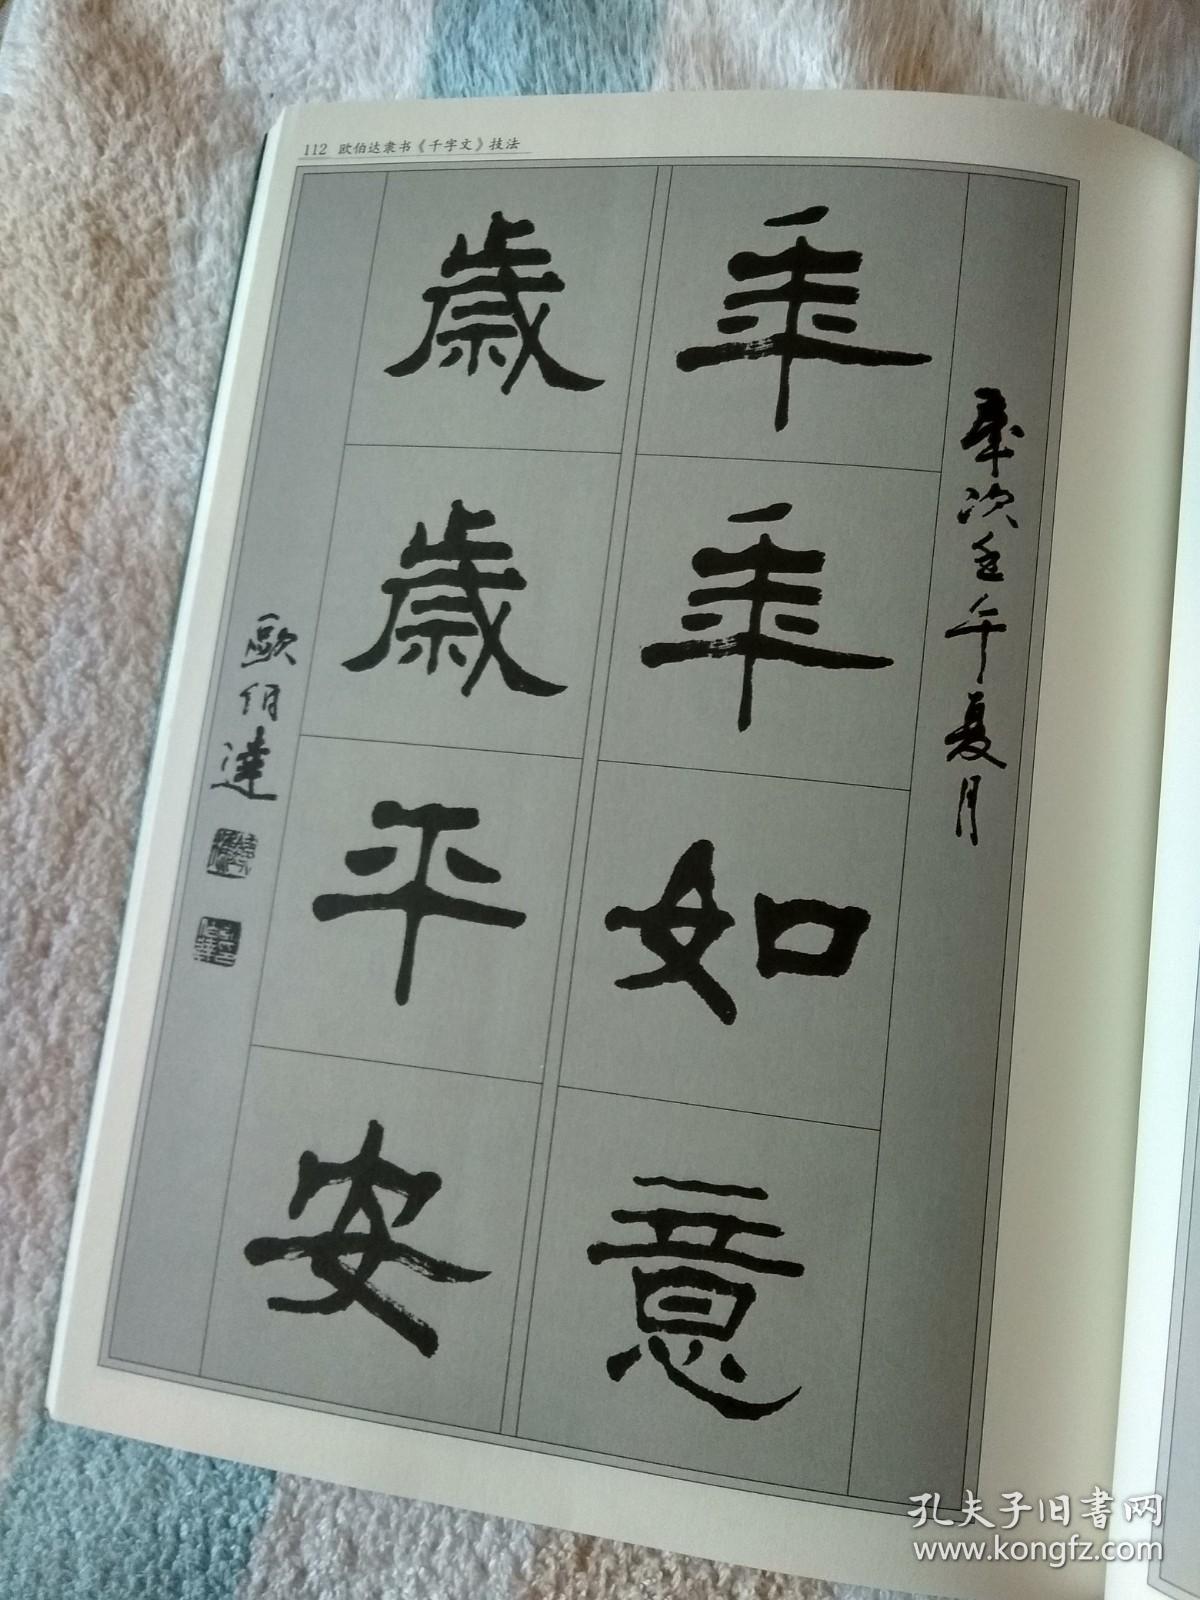 112 欧伯达隶书《千字文》技法
歲次壬午夏月
年年如意
歲歲平安
歐伯達
孔夫子旧書网
www.kongfz.com